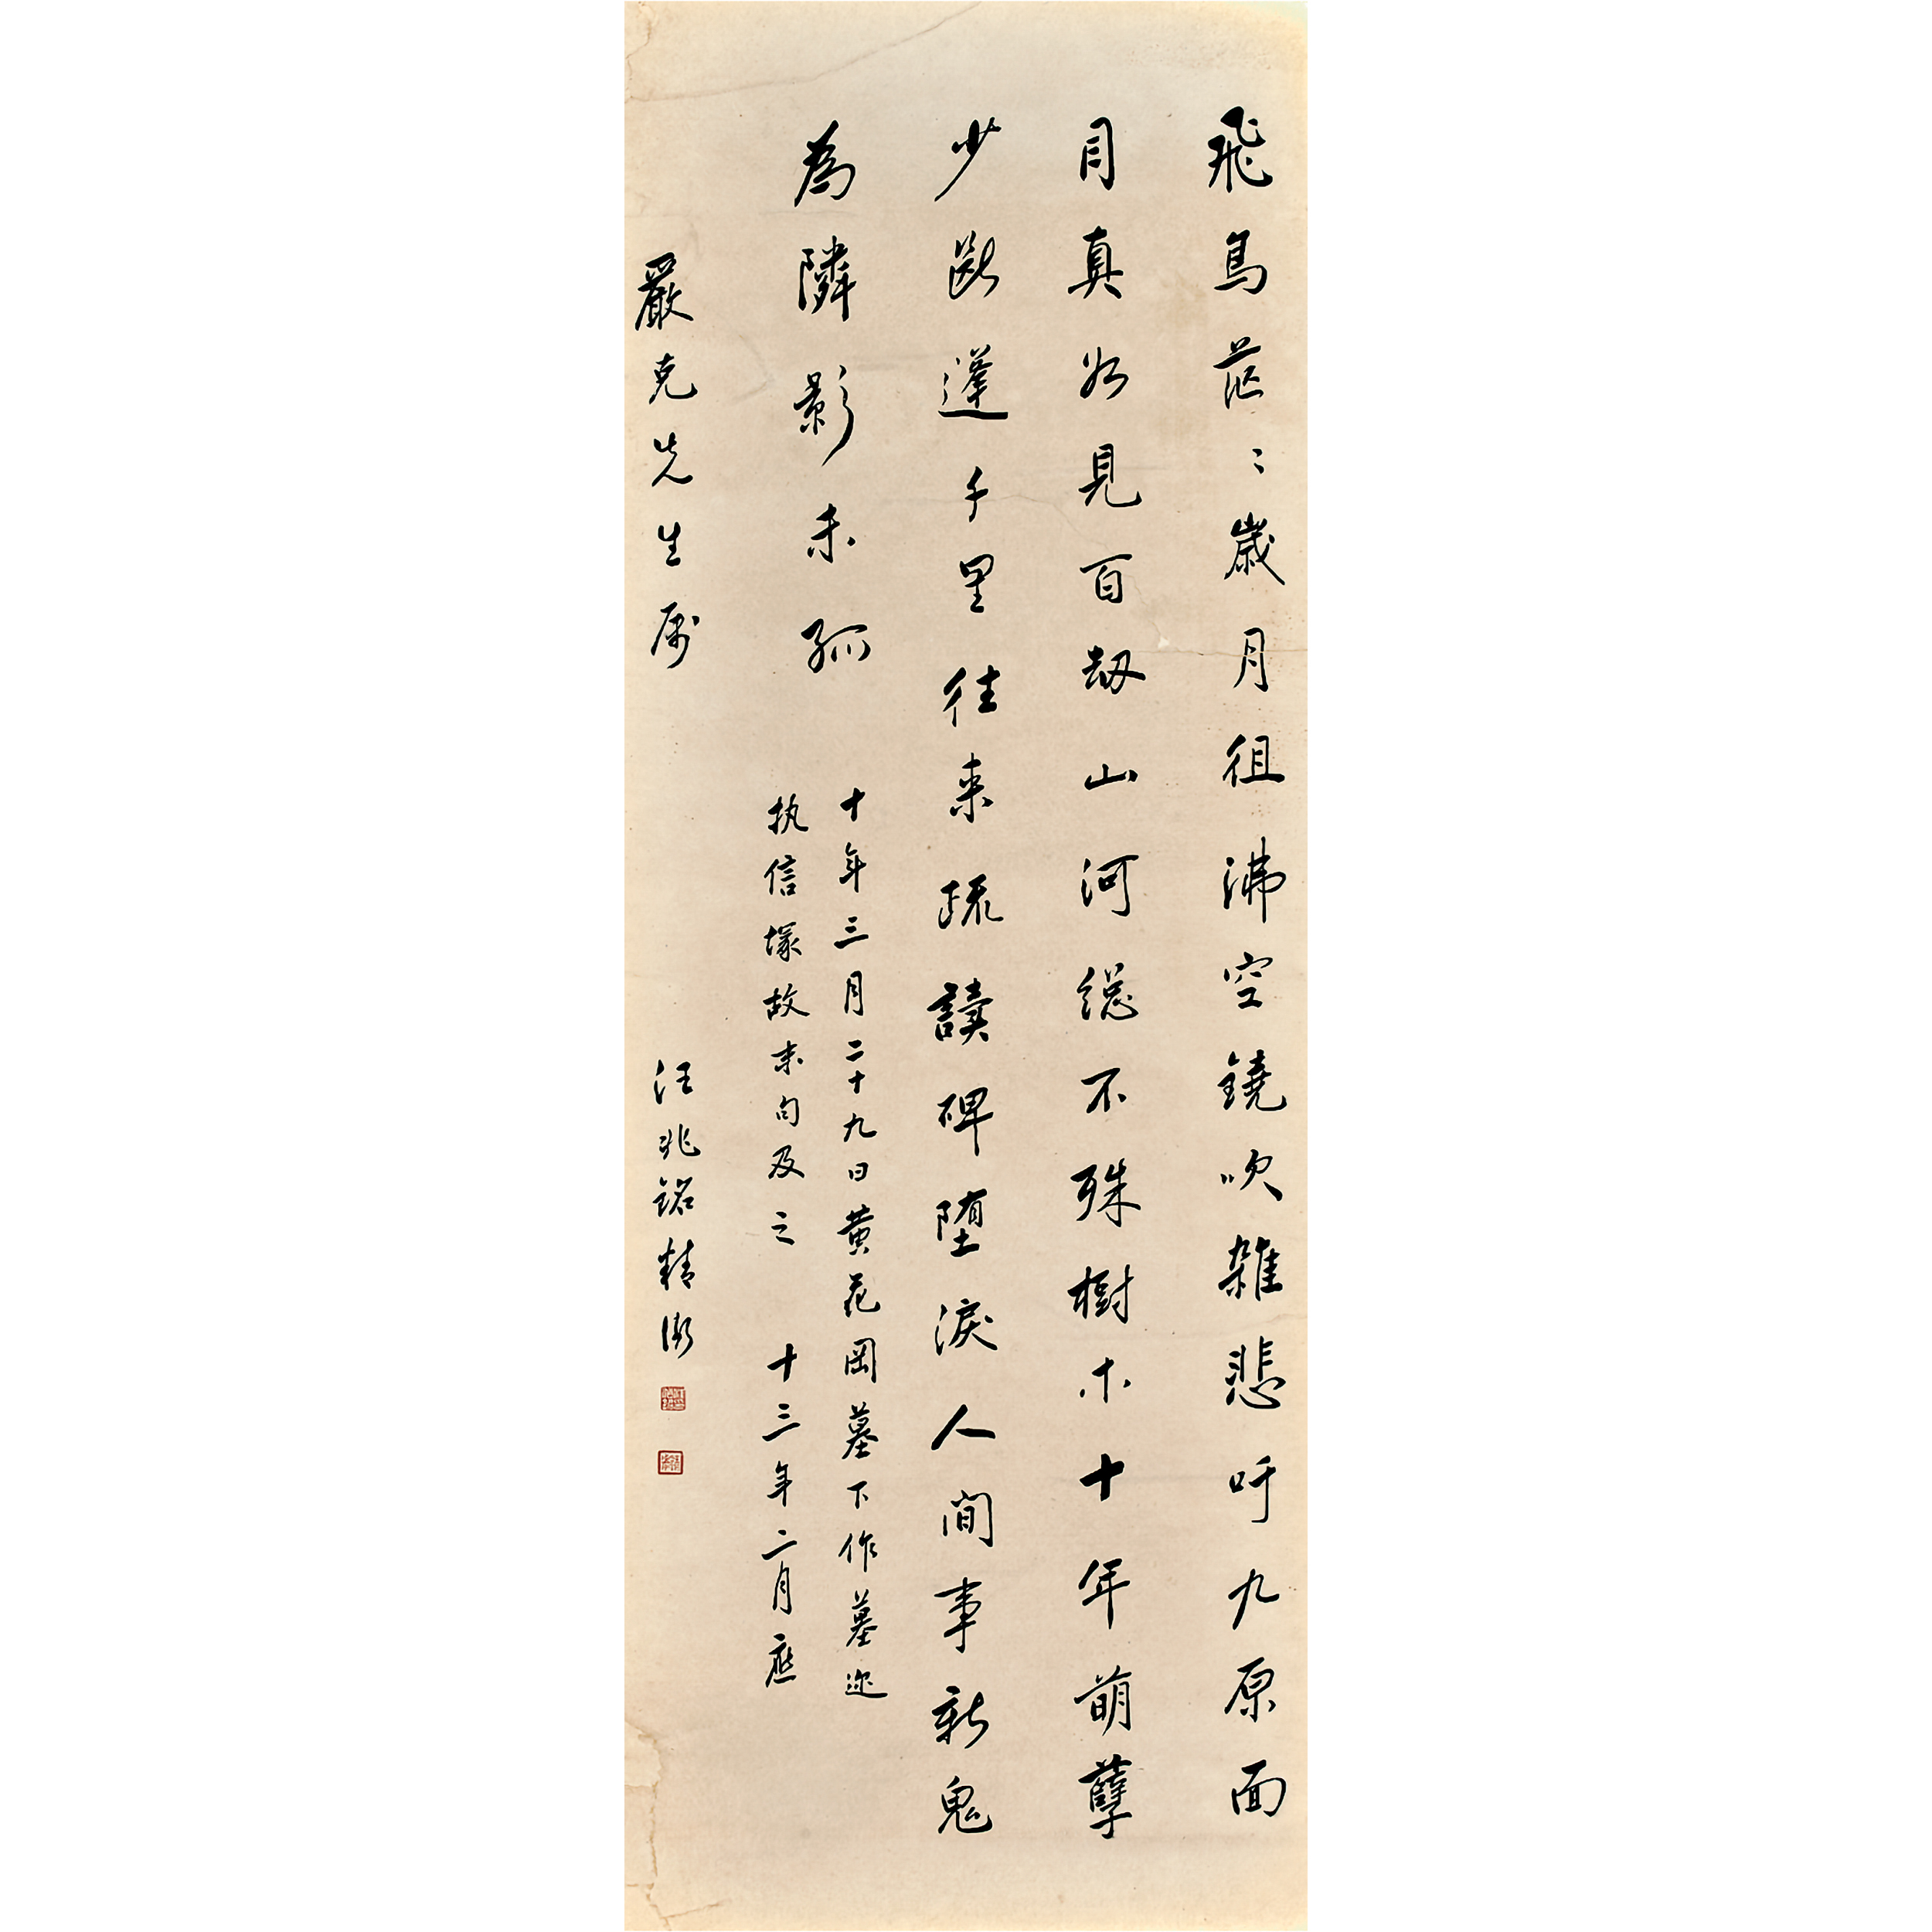 飛鳥茫〻歲月徂沸空鐃吹雜悲吁九原面
目真如見百劫山河總不殊樹木十年萌孽
少斷蓬千里往来疏讀碑墮淚人間事新鬼
為隣影未孤
十年三月二十九日黃花岡墓下作墓邇
执信塚故末句及之 十三年二月應
嚴克先生属
汪兆銘精衛